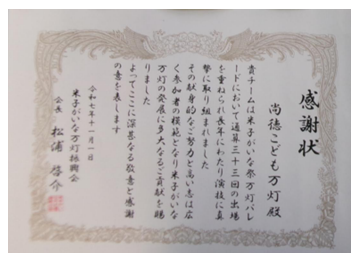 感謝状
尚徳こども万灯殿
貴チームは米子がいな祭万灯パレ
ードにおいて通算三十三回の出場
を重ねられ長年にわたり演技に真
摯に取り組まれました
その献身的なご努力と高い志は広
く参加者の模範となり米子がいな
万灯の発展に多大なるご貢献を賜
りました
よってここに深甚なる敬意と感謝
の意を表します
令和七年十一月一日
米子がいな万灯振興会
会長 松浦啓介